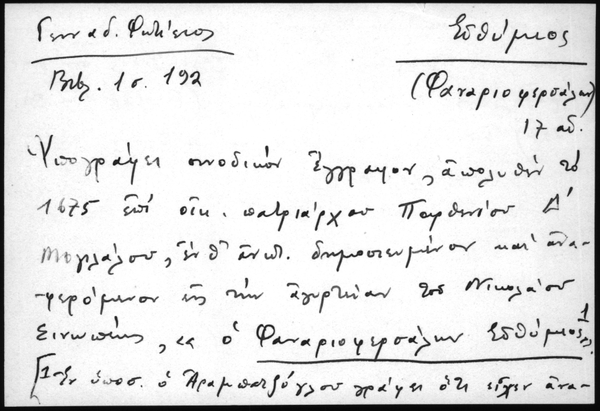 Γενναδ. Φωτίειος Εὐθύμιος
Βιβλ. 1 σ. 192 (Φαναριοφερσάλων)
17 αἰ.
Ὑπογράφει συνοδικόν ἔγγραφον, ἀπολυθέν τό
1675 ἐπί οἰκ. πατριάρχου Παρθενίου Δ΄
Μογιλάλου, ἐνθ᾽ ἀνωτ. δημοσιευμένον καί ἀνα-
φερόμενον εἰς τήν ἀγυρτείαν τοῦ Νικολάου
Σινωπέως, κα ὁ Φαναριοφερσάλων Εὐθύμιος 1
[1 Ἐν ὑποσ. ὁ Ἀραμπατζόγλου γράφει ὅτι εἶχεν ἀνα-